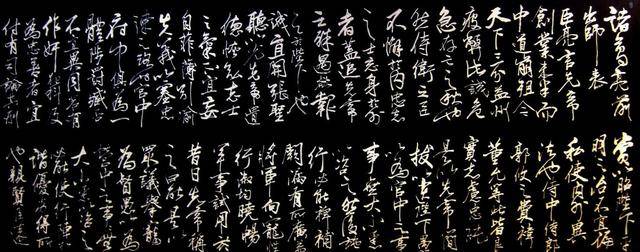 諸葛亮前
出師表
臣亮言先帝
創業未半而
中道崩殂今
天下三分益州
疲弊此誠危
急存亡之秋也
然侍衛之臣
不懈於內忠志
之士忘身於外
者蓋追先帝
之殊遇欲報
之於陛下也
誠宜開張聖
聽以光先帝遺
德恢弘志士
之氣不宜妄
自菲薄引喻
失義以塞忠
諫之路也宮中
府中俱為一
體陟罰臧否
不宜異同若有
作奸犯科及
為忠善者宜
付有司論其刑
賞以昭陛下平
明之治不宜偏
私使內外異
法也侍中侍郎
郭攸之費禕
董允等此皆良
實志慮忠純
是以先帝簡
拔以遺陛下愚
以為宮中之
事無大小悉以
咨之然後施
行必能裨補
闕漏有所廣益
將軍向寵性
行淑均曉暢
軍事試用於
昔日先帝稱
之曰能是以
眾議舉寵
為督愚以為
營中之事
大小悉以咨之
必能使行陣和
諧優劣得所
也親賢臣遠